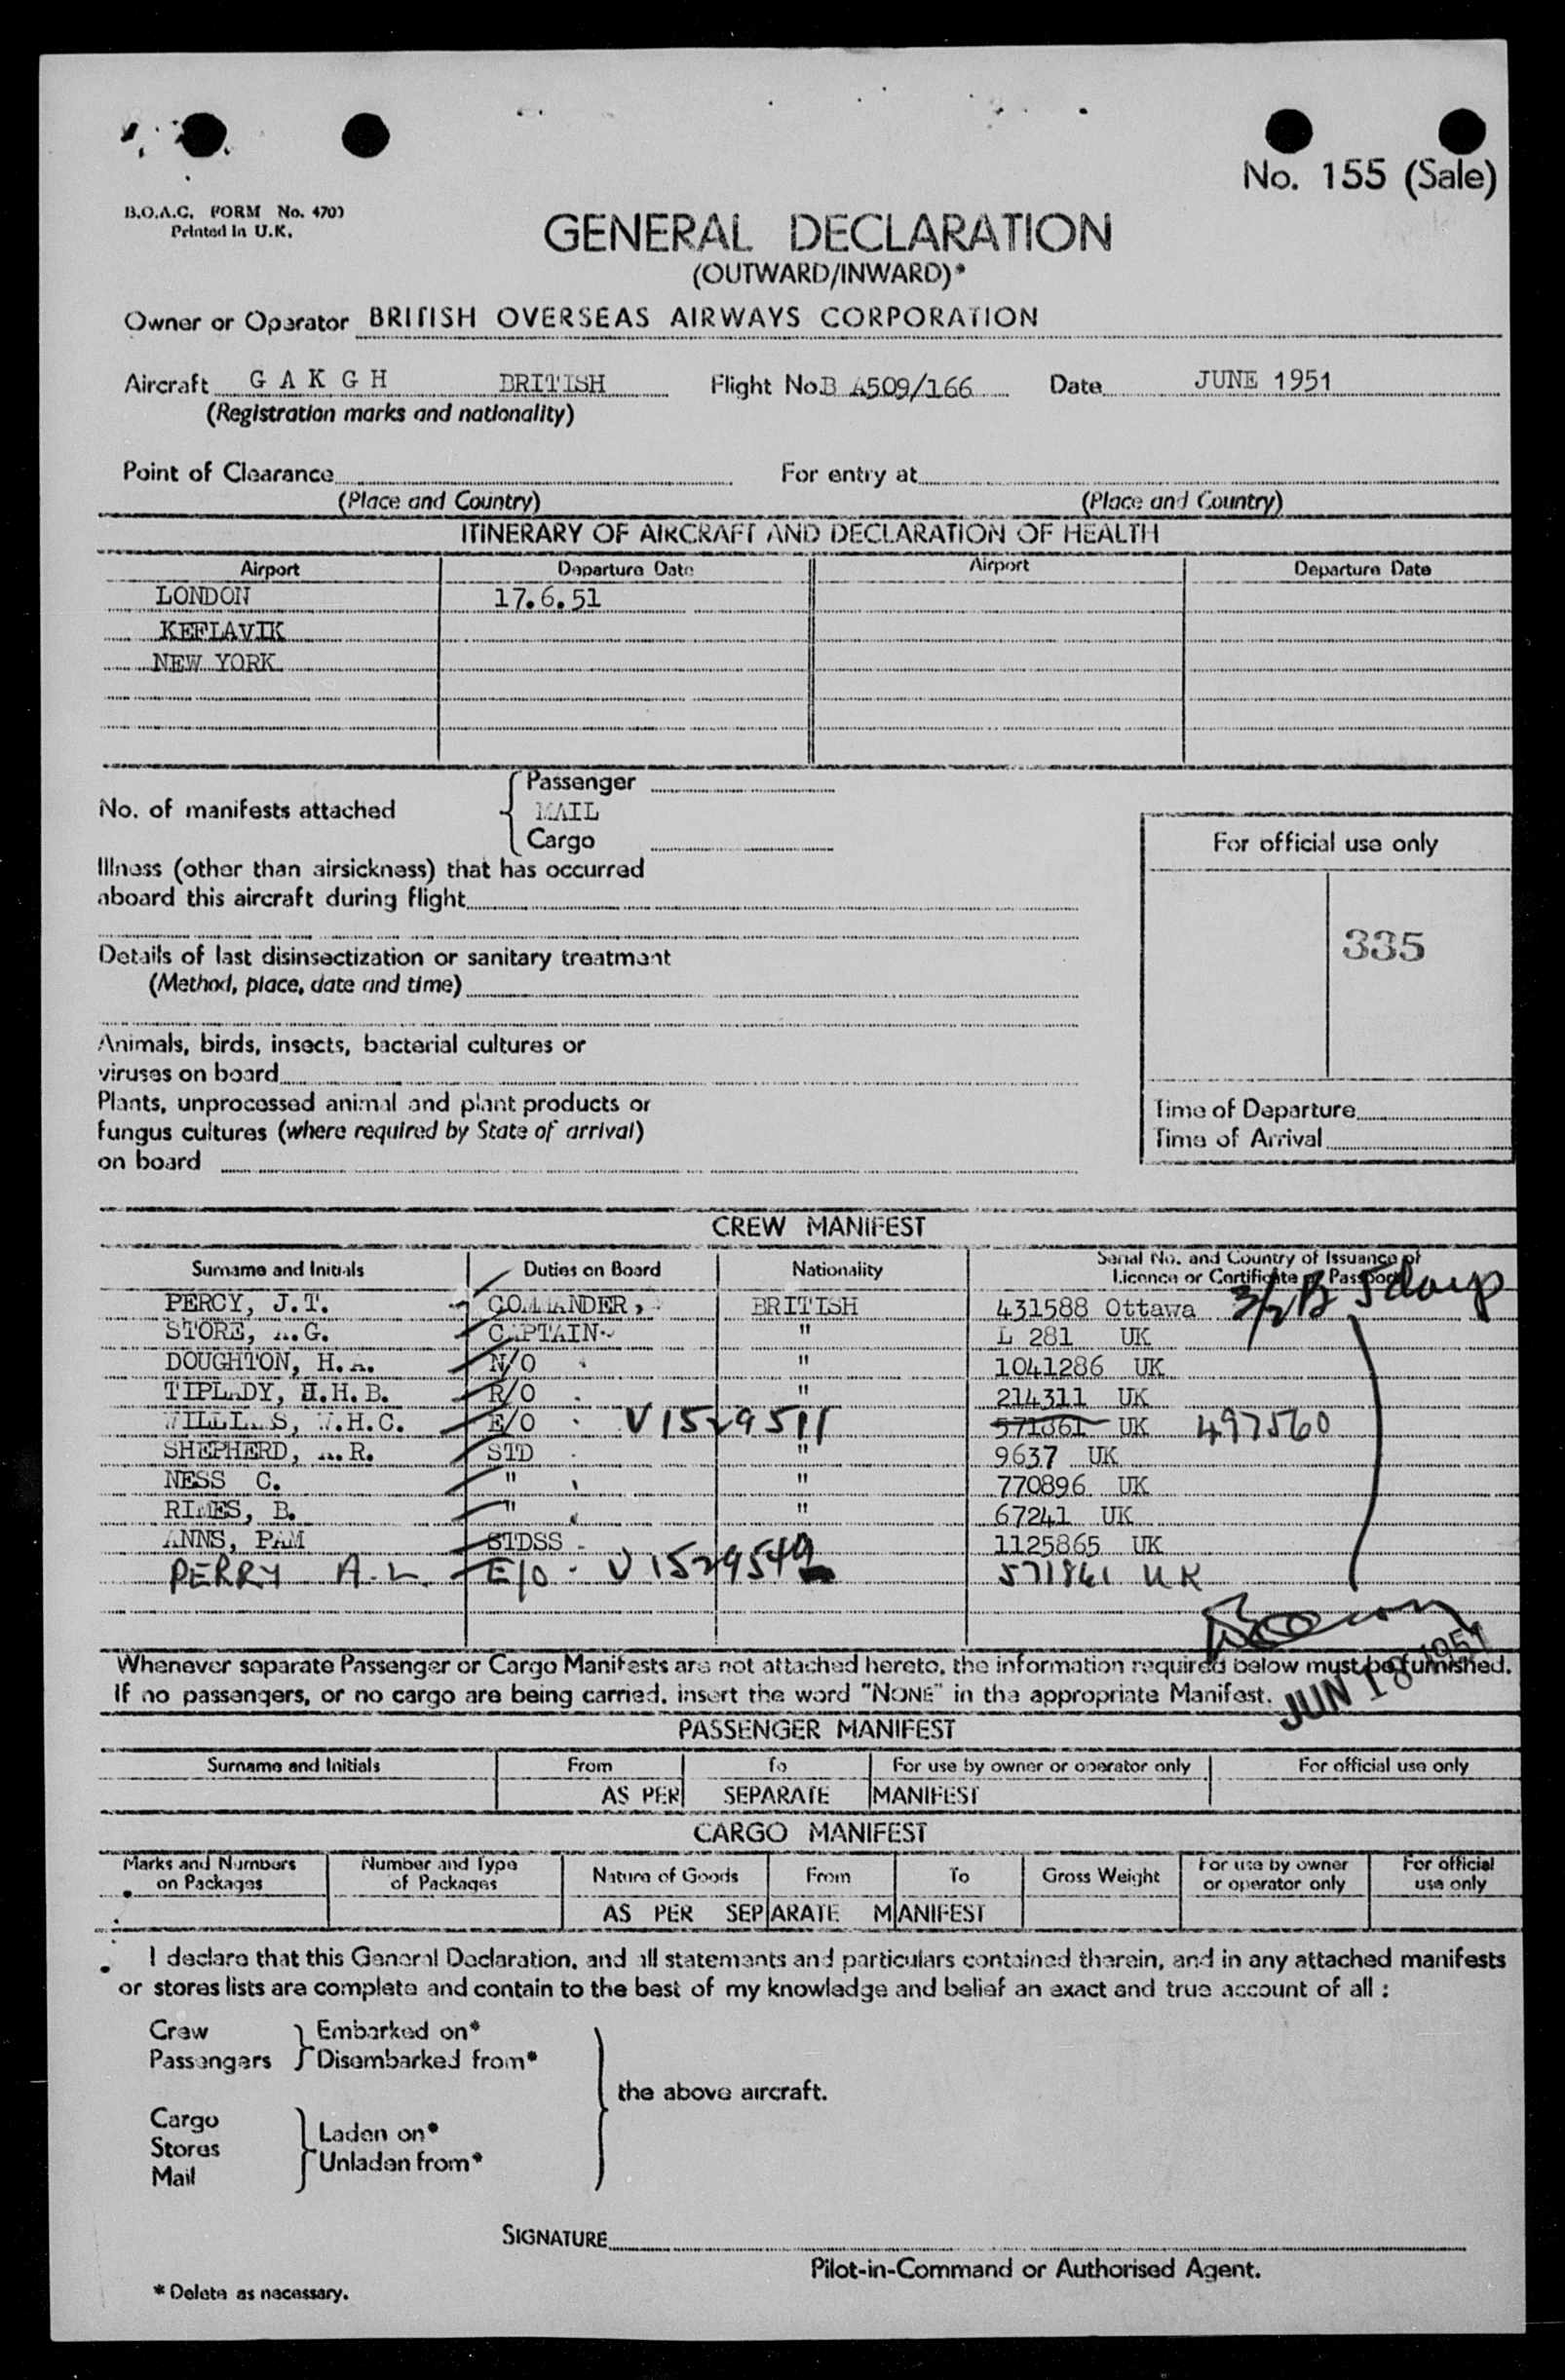 No. 155 (Sale)
B.O.A.C. FORM No. 4701
Printed in U.K.
GENERAL DECLARATION
(OUTWARD/INWARD)*
Owner or Operator BRITISH OVERSEAS AIRWAYS CORPORATION
Aircraft G A K G H BRITISH Flight No. B A509/166 Date JUNE 1951
(Registration marks and nationality)
Point of Clearance For entry at
(Place and Country) (Place and Country)
ITINERARY OF AIRCRAFT AND DECLARATION OF HEALTH
Airport Departure Date Airport Departure Date
LONDON 17.6.51
KEFLAVIK
NEW YORK
Passenger
No. of manifests attached MAIL
Cargo
For official use only
335
Illness (other than airsickness) that has occurred
aboard this aircraft during flight
Details of last disinsectization or sanitary treatment
(Method, place, date and time)
Animals, birds, insects, bacterial cultures or
viruses on board
Plants, unprocessed animal and plant products or
fungus cultures (where required by State of arrival)
on board
Time of Departure
Time of Arrival
CREW MANIFEST
Surname and Initials Duties on Board Nationality Serial No. and Country of Issuance of
Licence or Certificate or Passport
PERCY, J.T. COMMANDER, BRITISH 431588 Ottawa
STORE, A.G. CAPTAIN " L 281 UK
DOUGHTON, H.A. N/O " 1041286 UK
TIPLADY, H.H.B. R/O " 214311 UK
WILLIAMS, W.H.C. E/O V1529511 571861 UK 497560
SHEPHERD, A.R. STD " 9637 UK
NESS C. " " 770896 UK
RIMES, B. " " 67241 UK
ANNS, PAM STDSS 1125865 UK
PERRY A.L. E/O V 1529549 571861 UK
JUN 18 1951
Whenever separate Passenger or Cargo Manifests are not attached hereto, the information required below must be furnished.
If no passengers, or no cargo are being carried, insert the word "NONE" in the appropriate Manifest.
PASSENGER MANIFEST
Surname and Initials From To For use by owner or operator only For official use only
AS PER SEPARATE MANIFEST
CARGO MANIFEST
Marks and Numbers on Packages Number and Type of Packages Nature of Goods From To Gross Weight For use by owner or operator only For official use only
AS PER SEPARATE MANIFEST
I declare that this General Declaration, and all statements and particulars contained therein, and in any attached manifests
or stores lists are complete and contain to the best of my knowledge and belief an exact and true account of all :
Crew Embarked on*
Passengers Disembarked from*
the above aircraft.
Cargo
Stores Laden on*
Mail Unladen from*
SIGNATURE
Pilot-in-Command or Authorised Agent.
* Delete as necessary.